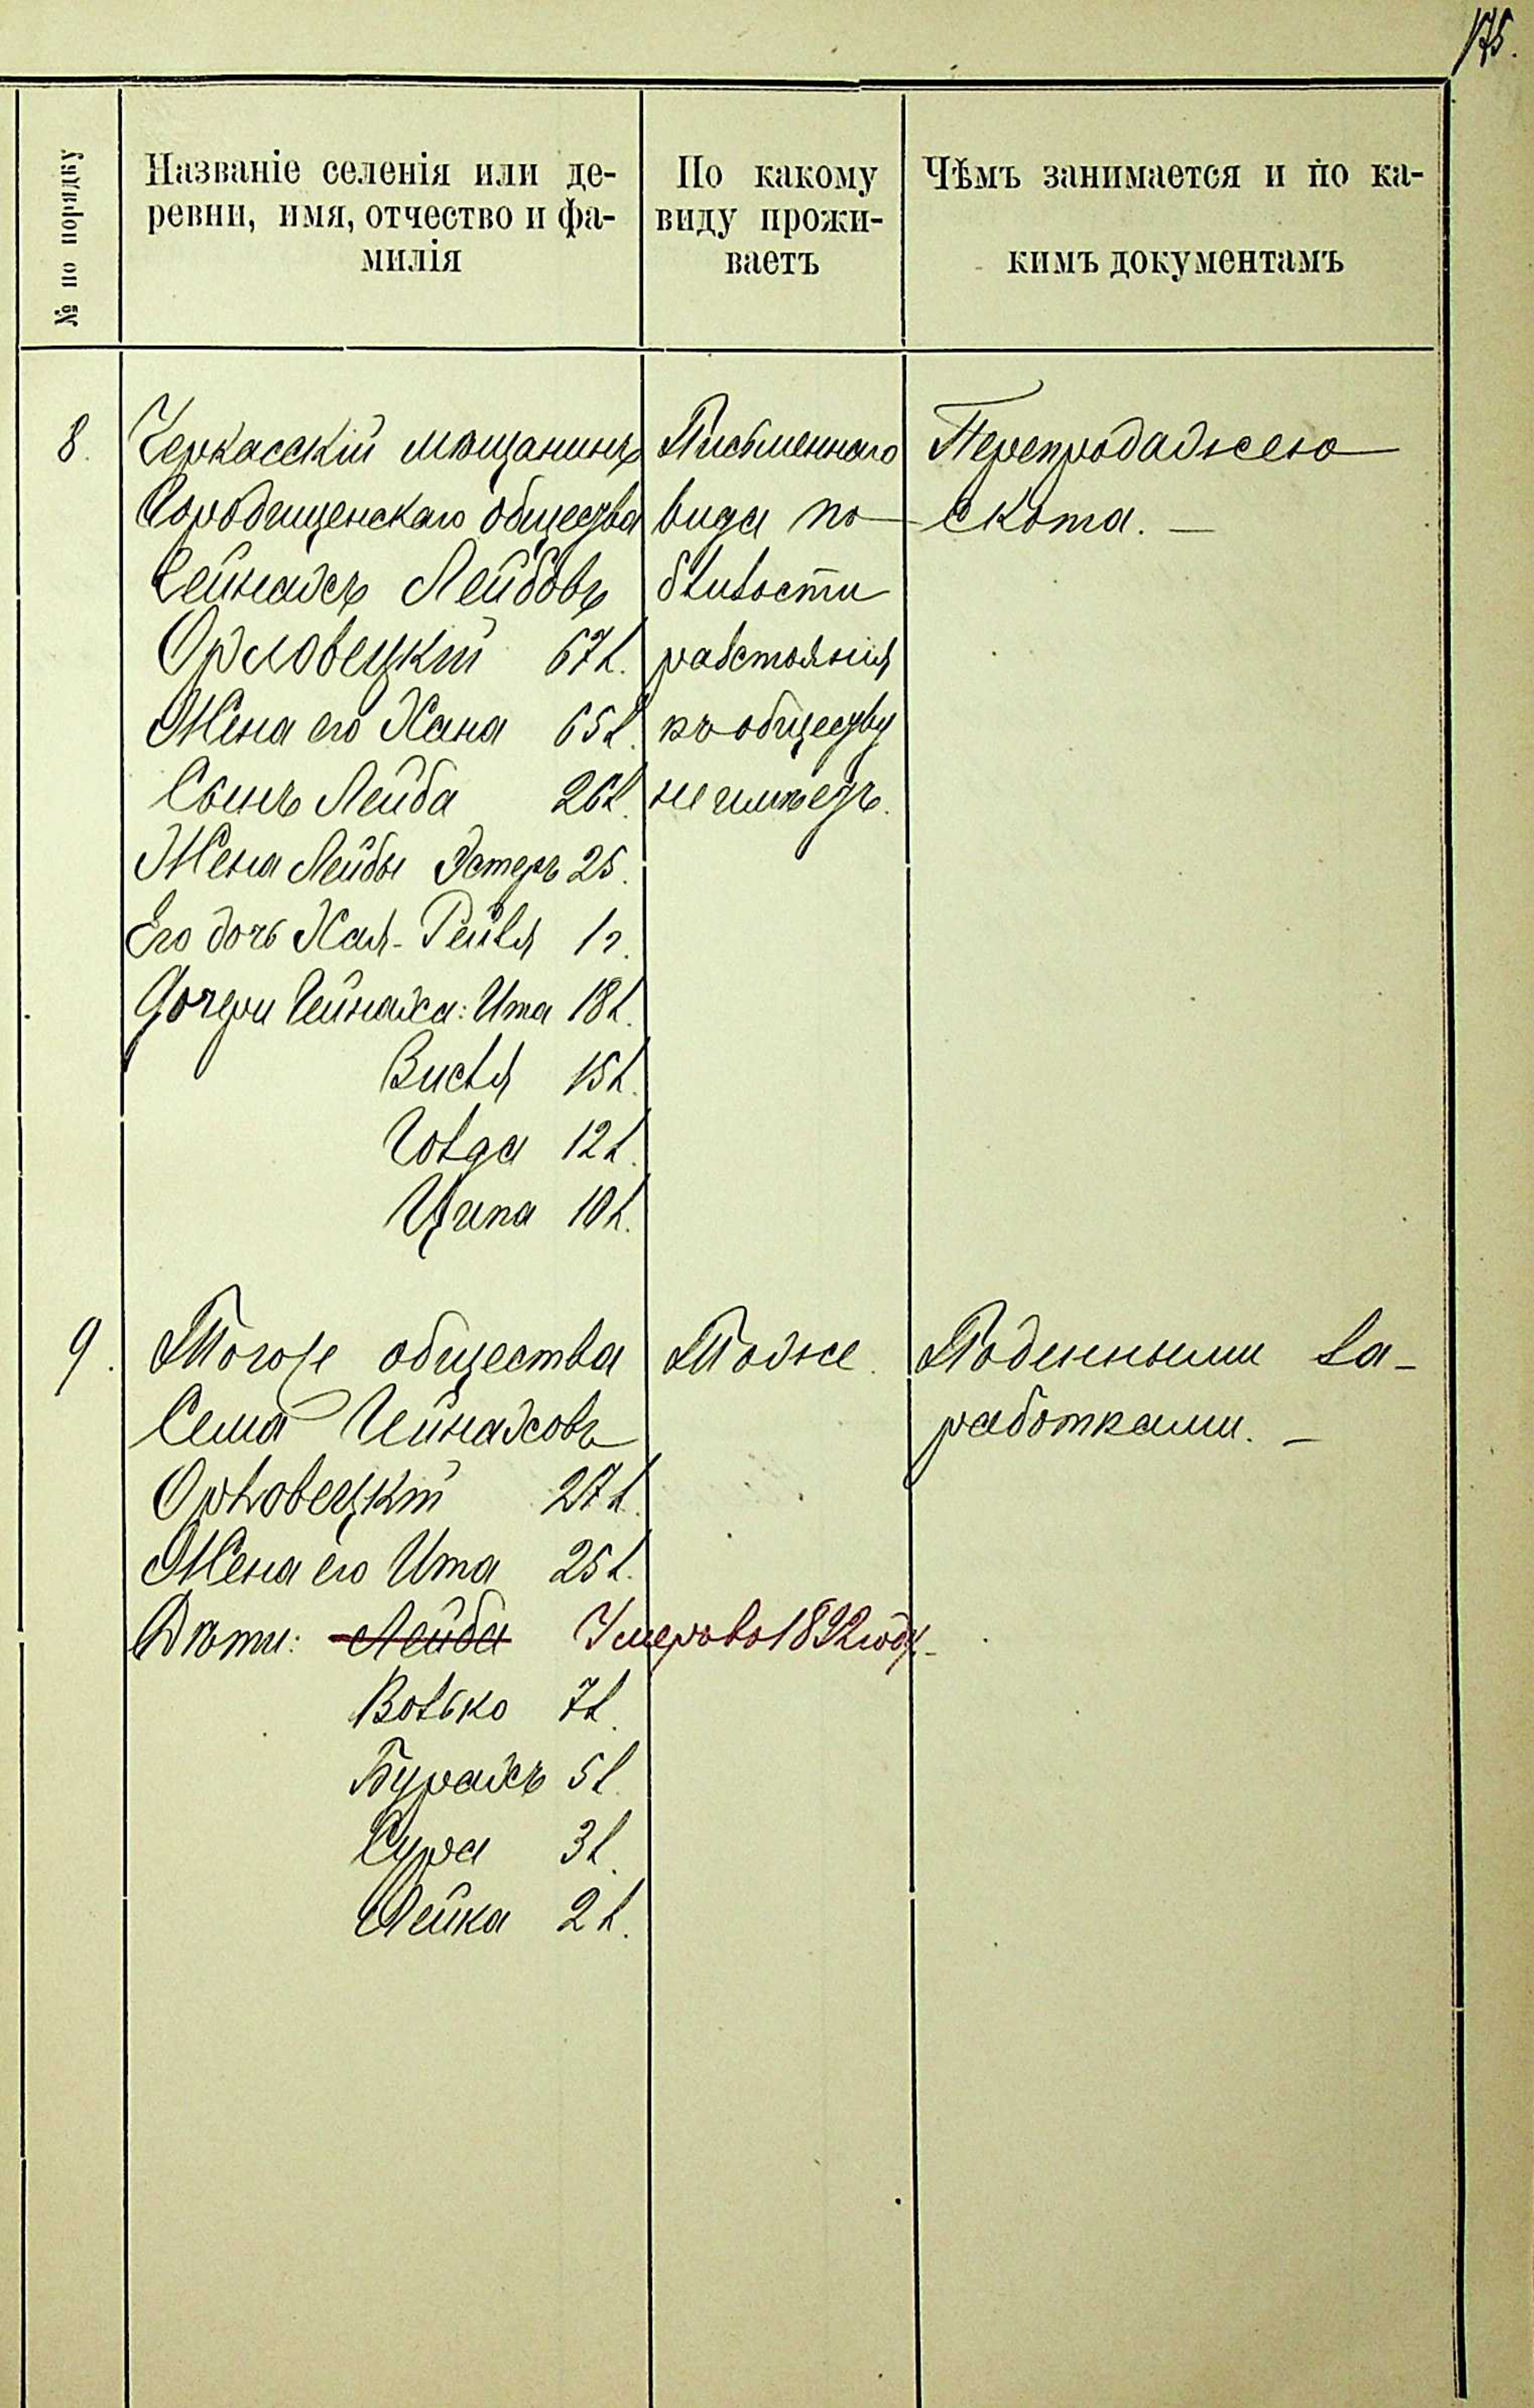 175.
№ по порядку
Названіе селенія или де-
ревни, имя, отчество и фа-
милія
По какому
виду прожи-
ваетъ
Чѣмъ занимается и по ка-
кимъ документамъ
8.
Черкасскій мѣщанинъ
Городищенскаго общества
Чейнахъ Лейбовъ
Орловецкій 67 л.
Жена его Хана 65 л.
Сынъ Лейба 26 л.
Жена Лейбы Эстеръ 25.
Его дочь Хая-Рейзя 1 г.
Дочери Чейнаха: Ита 18 л.
Вися 15 л.
Голда 12 л.
Ципа 10 л.
Письменнаго
вида по
близости
разстоянія
къ обществу
не имѣетъ.
Перепродажею
скота. —
9.
Тогоже общества
Сема Чейнаховъ
Орловецкій 27 л.
Жена его Ита 25 л.
Дѣти: Лейба Умеръ въ 1892 году.
Волько 7 л.
Бурахъ 5 л.
Сура 3 л.
Лейка 2 л.
Тоже.
Поденными за-
работками. —